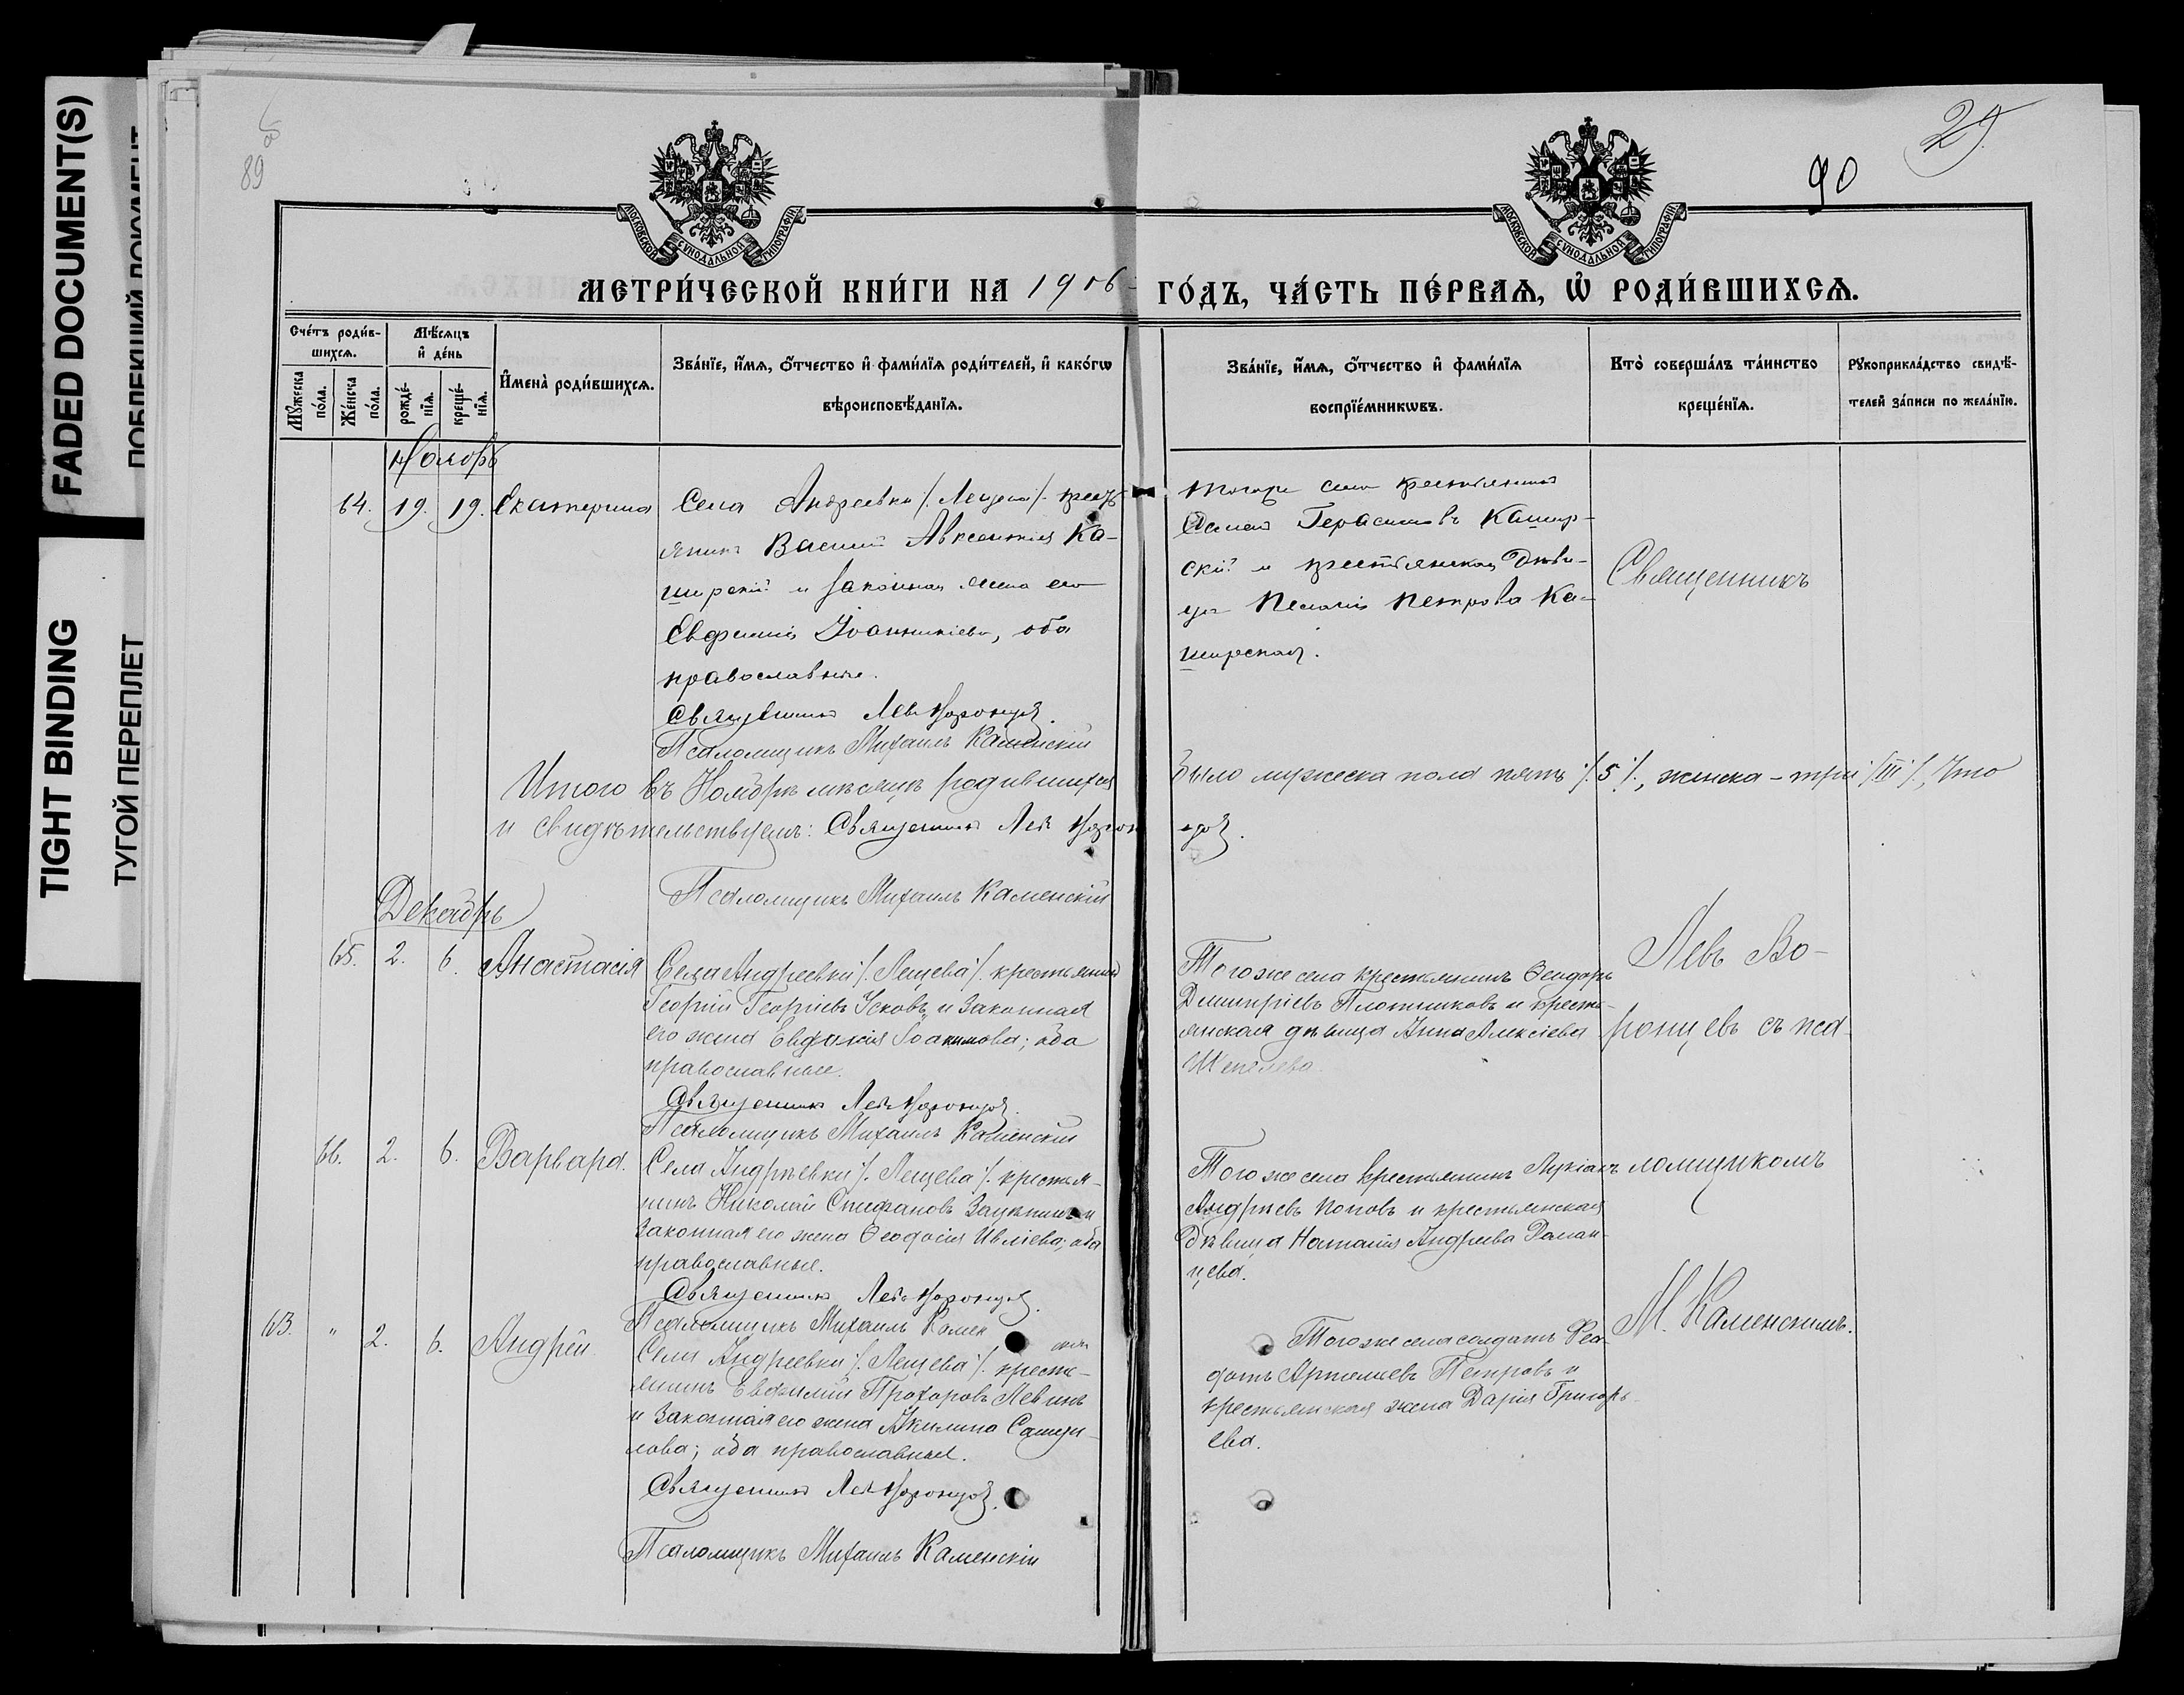 FADED DOCUMENT(S)
TIGHT BINDING
ТУГОЙ ПЕРЕПЛЕТ
89
90
29.
МОСКОВСКОЙ СѴНОДАЛЬНОЙ ТИПОГРАФІИ
МОСКОВСКОЙ СѴНОДАЛЬНОЙ ТИПОГРАФІИ
МЕТРИ́ЧЕСКОЙ КНИ́ГИ НА 1906 ГО́ДЪ, ЧА́СТЬ ПЕ́РВАѦ, Ѡ҆ РОДИ́ВШИХСѦ.
Сче́тъ роди́в-
шихсѧ.
Мꙋ́жеска по́ла.
Же́нска по́ла.
Мѣ́сѧцъ
и҆ де́нь
рожде́-нїѧ.
креще́-нїѧ.
И҆мена̀ роди́вшихсѧ.
Зва́нїе, и҆́мѧ, ѻ҆́тчество и҆ фами́лїѧ роди́телей, и҆ како́гѡ
вѣроисповѣ́данїѧ.
Зва́нїе, и҆́мѧ, ѻ҆́тчество и҆ фами́лїѧ
воспрїе́мникѡвъ.
Кто̀ соверша́лъ та́инство
креще́нїѧ.
Рꙋкоприкла́дство свидѣ́-
телей за́писи по жела́нїю.
Ноябрь
64. 19. 19. Екатерина
Села Андреевки /. Лещева /. кресть-
янинъ Василій Авксентіевъ Ка-
ширскій и законная жена его
Евфимія Іоанникіева, оба
православные.
Священникъ Левъ Воронцовъ.
Псаломщикъ Михаилъ Каменскій
тогоже села крестьянинъ
Герасимовъ Кашир-
скій и крестьянская дѣви-
ца Пелагія Петрова Ка-
ширская.
Священникъ
Итого въ Ноябрѣ мѣсяцѣ родившихся было мужеска пола пять /. 5 /., женска - три /III/, что
и свидѣтельствуемъ: Священникъ Левъ Воронцовъ.
Псаломщикъ Михаилъ Каменскій
Декабрь
65. 2. 6. Анастасія
Села Андреевки /. Лещева /. крестьянинъ
Георгій Георгіевъ Усковъ и законная
его жена Евфимія Іоакимова; оба
православные.
Священникъ Левъ Воронцовъ.
Псаломщикъ Михаилъ Каменскій
Тогоже села крестьянинъ Ѳеодоръ
Димитріевъ Плотниковъ и кресть-
янская дѣвица Анна Алексіева
Шепелева.
Левъ Во-
ронцевъ съ пса-
66. 2. 6. Варвара.
Села Андреевки /. Лещева /. крестья-
нинъ Николай Стефановъ
законная его жена Ѳеодосія Ивліева; оба
православные.
Священникъ Левъ Воронцовъ.
Псаломщикъ Михаилъ Каменскій
Тогоже села крестьянинъ Лукіанъ
Андреевъ Поповъ и крестьянская
дѣвица Наталія Андреева
цева.
ломщикомъ
М. Каменскимъ.
63. " 2. 6. Андрей
Села Андреевки /. Лещева /. кресть-
янинъ Евфимій Прохоровъ Левинъ
и законная его жена Акилина Самуи-
лова; оба православные.
Священникъ Левъ Воронцовъ.
Псаломщикъ Михаилъ Каменскій
Тогоже села солдатъ Ѳео-
дотъ Артемиевъ Петровъ и
крестьянская жена Дарія Григорь-
ева.